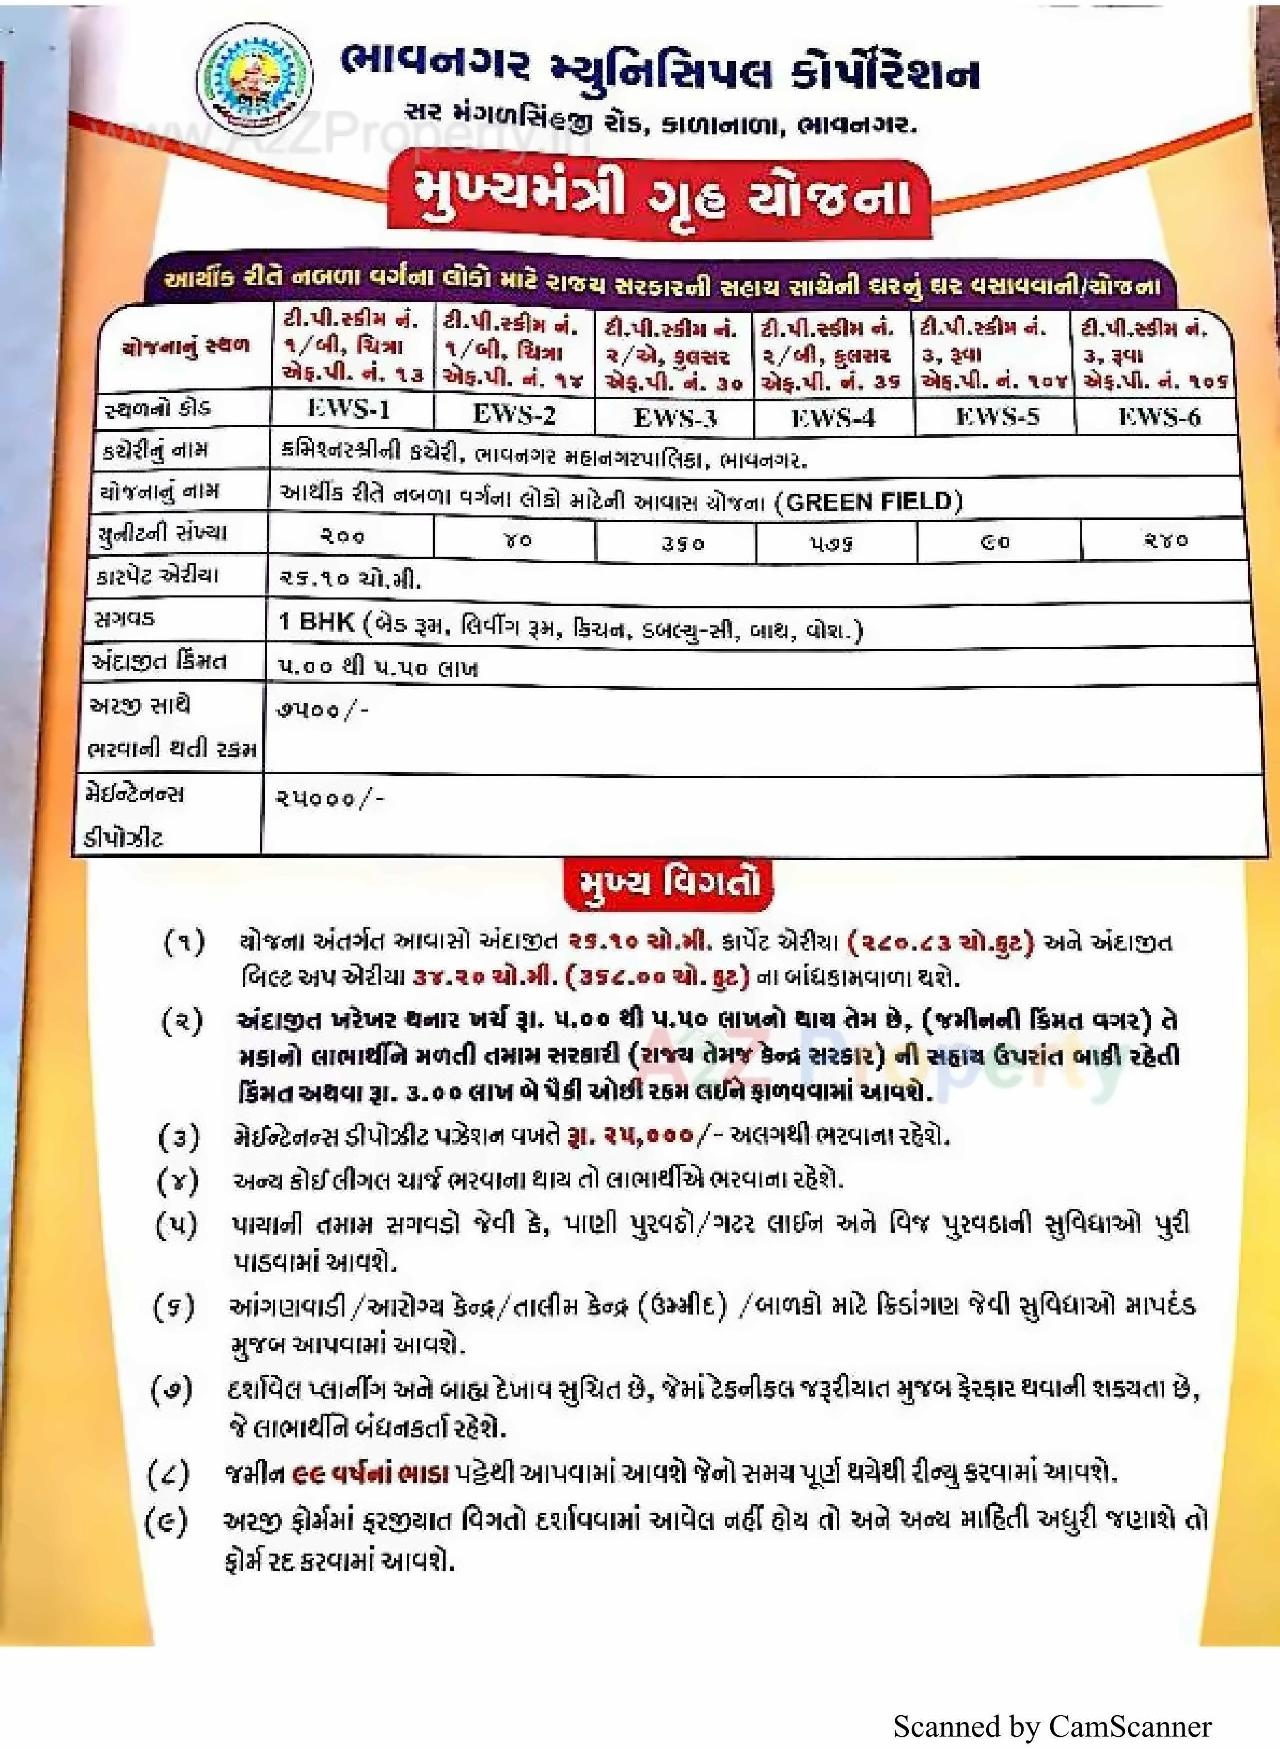 ભાવનગર મ્યુનિસિપલ કોર્પોરેશન
સર મંગળસિંહજી રોડ, કાળાનાળા, ભાવનગર.
www.A2ZProperty.in
મુખ્યમંત્રી ગૃહ યોજના
આર્થીક રીતે નબળા વર્ગના લોકો માટે રાજ્ય સરકારની સહાય સાથેની ઘરનું ઘર વસાવવાની યોજના
યોજનાનું સ્થળ ટી.પી.સ્કીમ નં. ૧/બી, ચિત્રા એફ.પી. નં. ૧૩ ટી.પી.સ્કીમ નં. ૧/બી, ચિત્રા એફ.પી. નં. ૧૪ ટી.પી.સ્કીમ નં. ૨/એ, ફુલસર એફ.પી. નં. ૩૦ ટી.પી.સ્કીમ નં. ૨/બી, ફુલસર એફ.પી. નં. ૩૬ ટી.પી.સ્કીમ નં. ૩, રૂવા એફ.પી. નં. ૧૦૪ ટી.પી.સ્કીમ નં. ૩, રૂવા એફ.પી. નં. ૧૦૬
સ્થળનો કોડ EWS-1 EWS-2 EWS-3 EWS-4 EWS-5 EWS-6
કચેરીનું નામ કમિશ્નરશ્રીની કચેરી, ભાવનગર મહાનગરપાલિકા, ભાવનગર.
યોજનાનું નામ આર્થીક રીતે નબળા વર્ગના લોકો માટેની આવાસ યોજના (GREEN FIELD)
યુનીટની સંખ્યા ૨૦૦ ૪૦ ૩૬૦ ૫૭૬ ૯૦ ૨૪૦
કારપેટ એરીયા ૨૬.૧૦ ચો.મી.
સગવડ 1 BHK (બેડ રૂમ, લિવીંગ રૂમ, કિચન, ડબલ્યુ-સી, બાથ, વોશ.)
અંદાજીત કિંમત ૫.૦૦ થી ૫.૫૦ લાખ
અરજી સાથે ભરવાની થતી રકમ ૭૫૦૦/-
મેઈન્ટેનન્સ ડીપોઝીટ ૨૫૦૦૦/-
મુખ્ય વિગતો
(૧) યોજના અંતર્ગત આવાસો અંદાજીત ૨૬.૧૦ ચો.મી. કાર્પેટ એરીયા (૨૮૦.૮૩ ચો.ફુટ) અને અંદાજીત
બિલ્ટ અપ એરીયા ૩૪.૨૦ ચો.મી. (૩૬૮.૦૦ ચો. ફુટ) ના બાંધકામવાળા થશે.
(૨) અંદાજીત ખરેખર થનાર ખર્ચ રૂા. ૫.૦૦ થી ૫.૫૦ લાખનો થાય તેમ છે, (જમીનની કિંમત વગર) તે
મકાનો લાભાર્થીને મળતી તમામ સરકારી (રાજ્ય તેમજ કેન્દ્ર સરકાર) ની સહાય ઉપરાંત બાકી રહેતી
કિંમત અથવા રૂા. ૩.૦૦ લાખ બે પૈકી ઓછી રકમ લઈને ફાળવવામાં આવશે.
A2Z Property
(૩) મેઈન્ટેનન્સ ડીપોઝીટ પઝેશન વખતે રૂા. ૨૫,૦૦૦/- અલગથી ભરવાના રહેશે.
(૪) અન્ય કોઈ લીગલ ચાર્જ ભરવાના થાય તો લાભાર્થીએ ભરવાના રહેશે.
(૫) પાયાની તમામ સગવડો જેવી કે, પાણી પુરવઠો/ગટર લાઈન અને વિજ પુરવઠાની સુવિધાઓ પુરી
પાડવામાં આવશે.
(૬) આંગણવાડી/આરોગ્ય કેન્દ્ર/તાલીમ કેન્દ્ર (ઉમ્મીદ) /બાળકો માટે ક્રિડાંગણ જેવી સુવિધાઓ માપદંડ
મુજબ આપવામાં આવશે.
(૭) દર્શાવેલ પ્લાનીંગ અને બાહ્ય દેખાવ સુચિત છે, જેમાં ટેકનીકલ જરૂરીયાત મુજબ ફેરફાર થવાની શક્યતા છે,
જે લાભાર્થીને બંધનકર્તા રહેશે.
(૮) જમીન ૯૯ વર્ષનાં ભાડા પટ્ટેથી આપવામાં આવશે જેનો સમય પૂર્ણ થયેથી રીન્યુ કરવામાં આવશે.
(૯) અરજી ફોર્મમાં ફરજીયાત વિગતો દર્શાવવામાં આવેલ નહીં હોય તો અને અન્ય માહિતી અધુરી જણાશે તો
ફોર્મ રદ કરવામાં આવશે.
Scanned by CamScanner